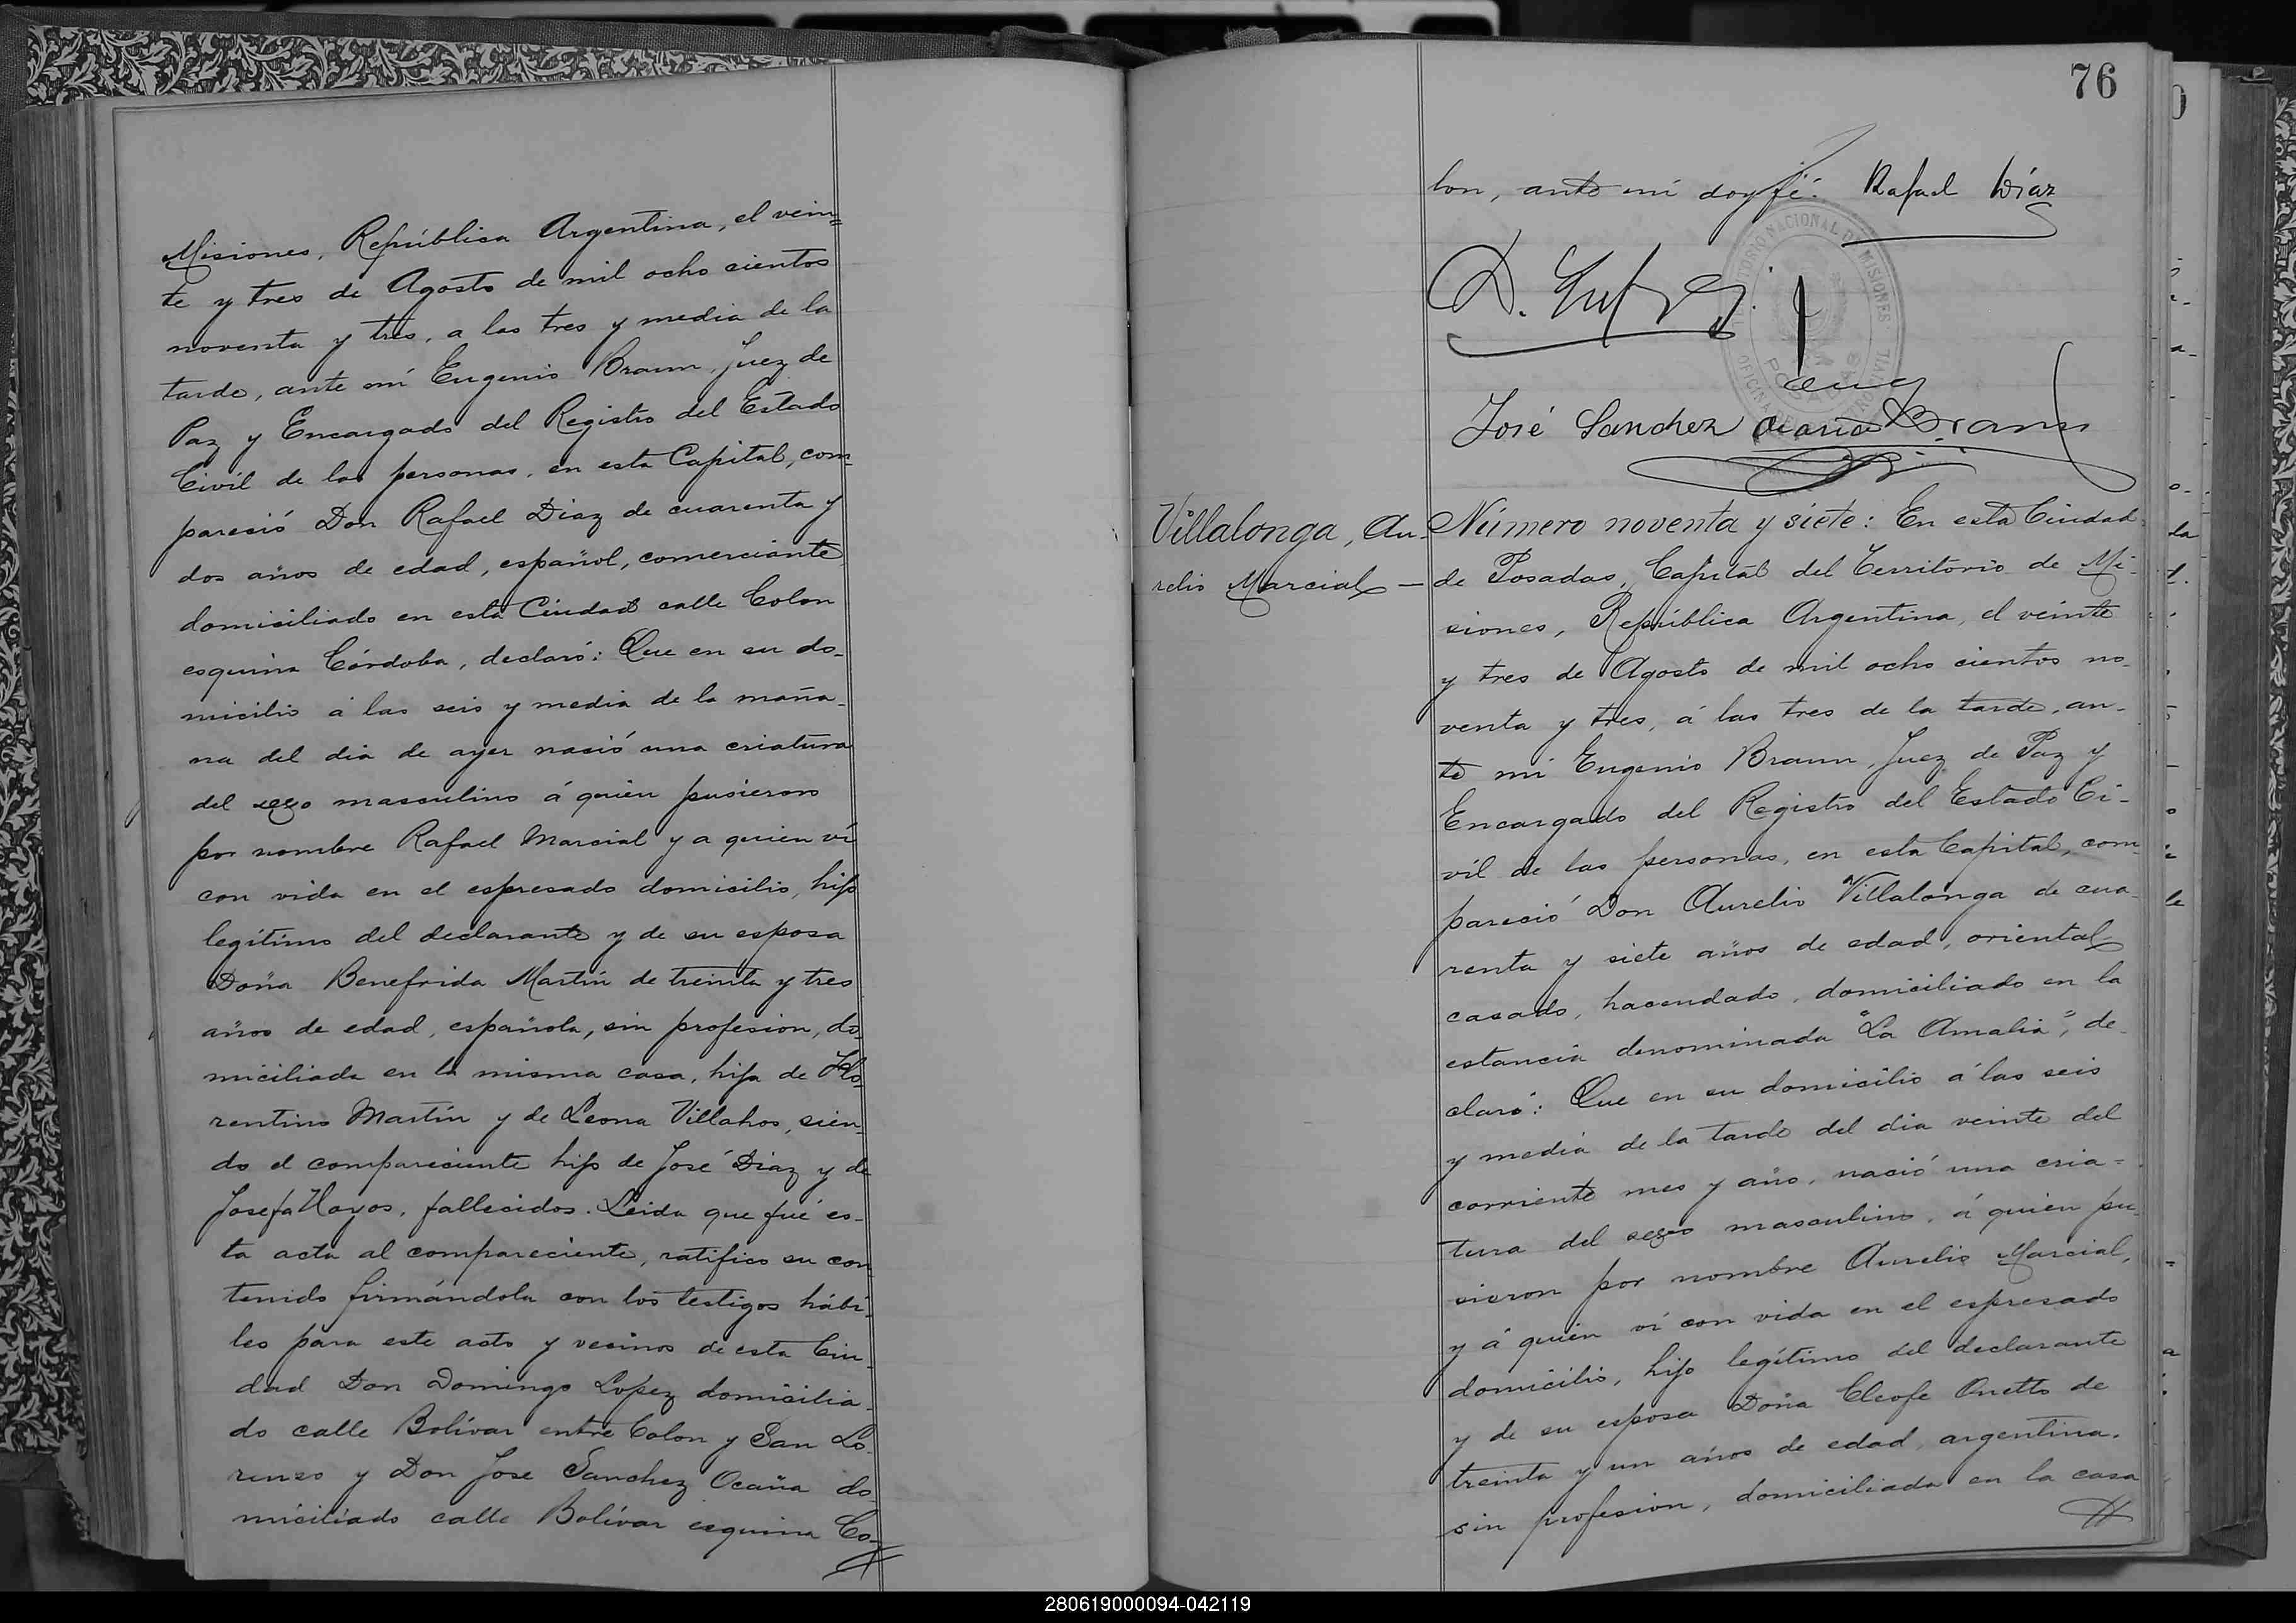 Misiones, República Argentina, el vein=
te y tres de Agosto de mil ocho cientos
noventa y tres, a las tres y media de la
tarde, ante mí Eugenio Braun, Juez de
Paz y Encargado del Registro del Estado
Civíl de las personas, en esta Capital, com-
pareció Don Rafael Diaz de cuarenta y
dos años de edad, español, comerciante
domiciliado en esta Ciudad calle Colon
esquina Córdoba, declaró: Que en su do-
micilio á las seis y media de la maña-
na del dia de ayer nació una criatura
del sexo masculino á quien pusieron
por nombre Rafael Marcial y a quien ví
con vida en el espresado domicilio, hijo
legítimo del declarante y de su esposa
Doña Benefrida Martín de treinta y tres
años de edad, española, sin profesion, do-
miciliada en la misma casa, hija de Flo-
rentino Martín y de Leona Villahos, sien-
do el compareciente hijo de José Diaz y de
Josefa Hoyos, fallecidos. Leida que fué es-
ta acta al compareciente, ratifico su con
tenido firmándola con los testigos hábi-
les para este acto y vecinos de esta Ciu-
dad Don Domingo Lopez domicilia-
do calle Bolívar entre Colon y San Lo-
renzo y Don Jose Sanchez Ocaña do-
miciliado calle Bolívar esquina Co-
76
lon, ante mí doy fé. Rafael Díaz
TERRITORIO NACIONAL DE MISIONES
POSADAS
José Sanchez Ocaña Braun
Villalonga, Au-
relio Marcial —
Número noventa y siete: En esta Ciudad
de Posadas, Capital del Territorio de Mi-
siones, República Argentina, el veinte
y tres de Agosto de mil ocho cientos no-
venta y tres, á las tres de la tarde, an-
te mí Eugenio Braun, Juez de Paz y
Encargado del Registro del Estado Ci-
víl de las personas, en esta Capital, com-
pareció Don Aurelio Villalonga de cua-
renta y siete años de edad, oriental
casado, hacendado, domiciliado en la
estancia denominada "La Amalia", de-
claró: Que en su domicilio á las seis
y media de la tarde del dia veinte del
corriente mes y año, nació una cria-
tura del sexo masculino, á quien pu-
sieron por nombre Aurelio Marcial,
y á quien ví con vida en el espresado
domicilio, hijo legítimo del declarante
y de su esposa Doña Cleofe Onetto de
treinta y un años de edad, argentina.
sin profesion, domiciliada en la casa
280619000094-042119